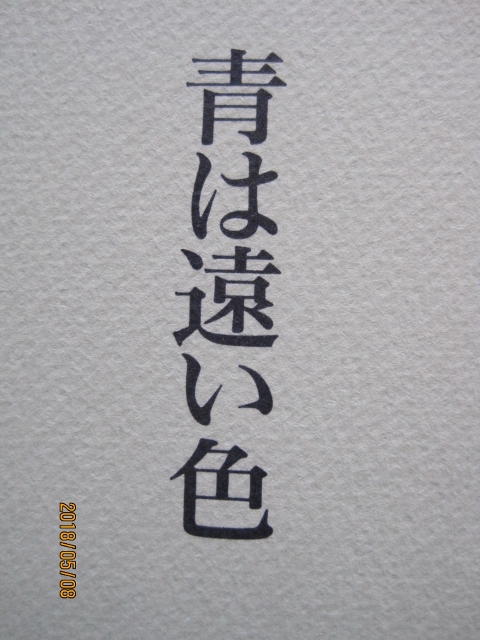 青は遠い色
2018/05/08